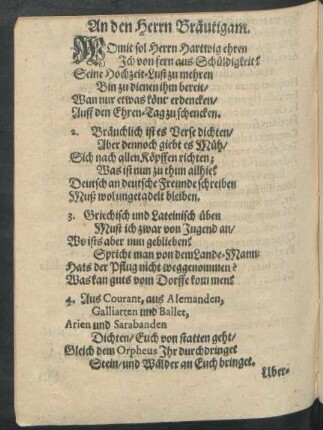 An den Herrn Bräutigam.
WOmit sol Herrn Hartwig ehren
Ich von fern aus Schüldigkeit?
Seine Hochzeit-Lust zu mehren
Bin zu dienen ihm bereit/
Wan nur etwas könt' erdencken/
Auff den Ehren-Tag zu schencken.
2. Bräuchlich ist es Verse dichten/
Aber dennoch giebt es Müh/
Sich nach allen Köpffen richten;
Was ist nun zu thun allhie?
Deutsch an deutsche Freunde schreiben
Muß wol ungetadelt bleiben.
3. Griechisch und Lateinisch üben
Must ich zwar von Jugend an/
Wo ists aber nun geblieben?
Spricht man von dem Lande-Mann:
Hats der Pflug nicht weggenommen?
Was kan guts vom Dorffe kommen?
4. Aus Courant, aus Alemanden,
Galliarten und Ballet,
Arien und Sarabanden
Dichten/ Euch von statten geht/
Gleich dem Orpheus Ihr durchdringet
Stein/ und Wälder an Euch bringet.
Uber-